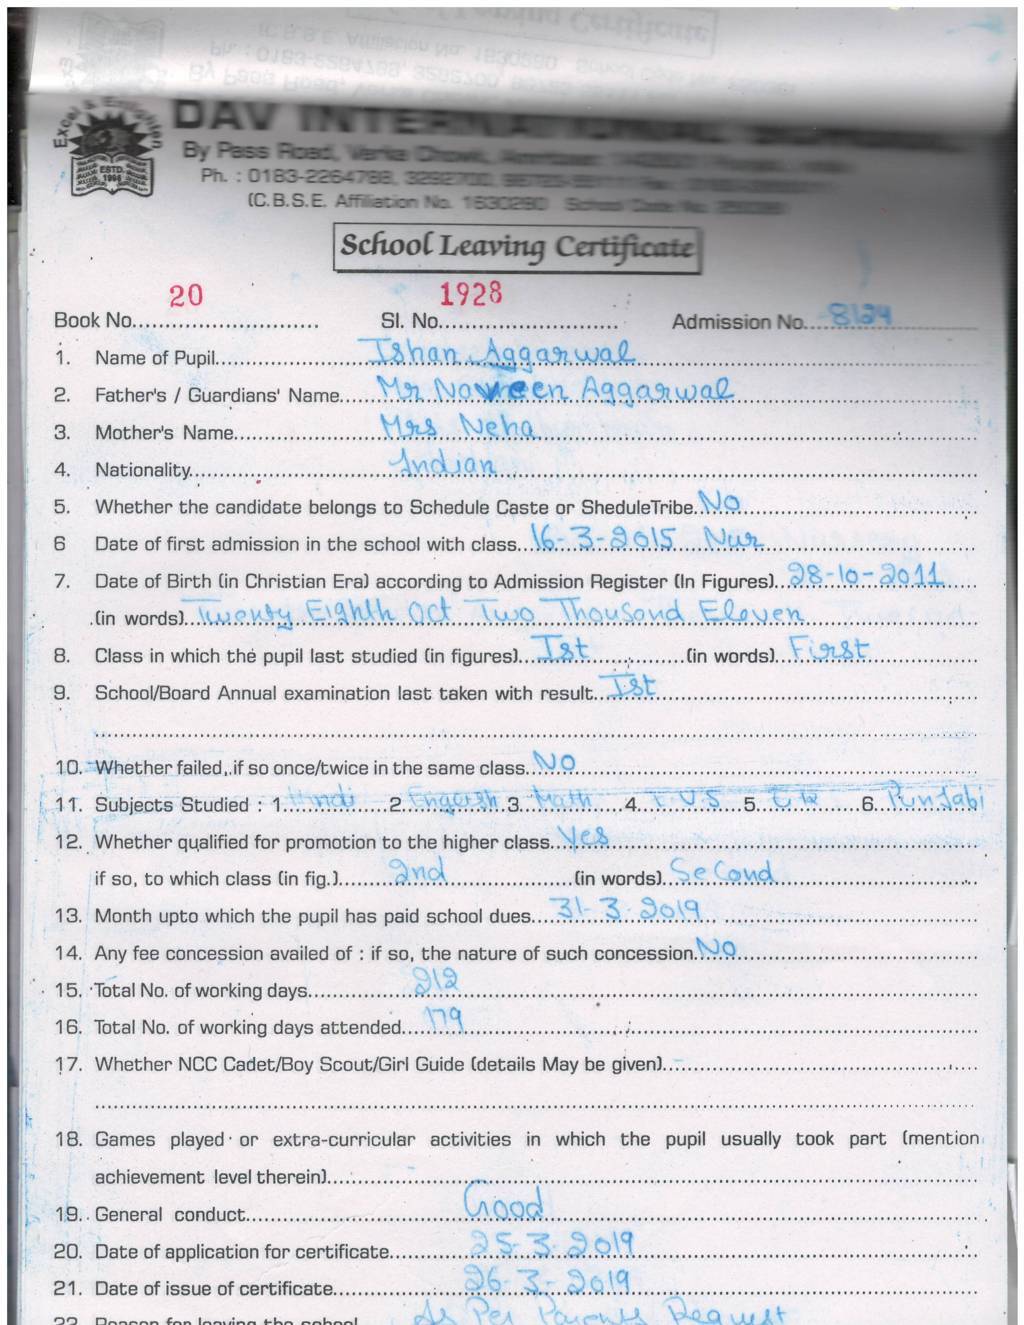 Excel & Enlighten
ESTD. 1996
DAV INTERNATIONAL
By Pass Road, Verka Chowk,
Ph. : 0183-2264788, 3292700,
(C.B.S.E. Affiliation No. 1630290 School Code No.
School Leaving Certificate
20 1928
Book No. Sl. No. Admission No. 8124
1. Name of Pupil Ishan Aggarwal
2. Father's / Guardians' Name Mr Navneen Aggarwal
3. Mother's Name Mrs Neha
4. Nationality Indian
5. Whether the candidate belongs to Schedule Caste or SheduleTribe. No
6 Date of first admission in the school with class 16-3-2015 Nur
7. Date of Birth (in Christian Era) according to Admission Register (In Figures) 28-10-2011
(in words) Twenty Eighth Oct Two Thousand Eleven
8. Class in which the pupil last studied (in figures) Ist (in words) First
9. School/Board Annual examination last taken with result Ist
10. Whether failed, if so once/twice in the same class No
11. Subjects Studied : 1. Hindi 2. English 3. Math 4. E.V.S 5. 6. Punjabi
12. Whether qualified for promotion to the higher class Yes
if so, to which class (in fig.) 2nd (in words) Second
13. Month upto which the pupil has paid school dues 31-3-2019
14. Any fee concession availed of : if so, the nature of such concession No
15. Total No. of working days 212
16. Total No. of working days attended 179
17. Whether NCC Cadet/Boy Scout/Girl Guide (details May be given) -
18. Games played or extra-curricular activities in which the pupil usually took part (mention
achievement level therein) -
19. General conduct Good
20. Date of application for certificate 25-3-2019
21. Date of issue of certificate 26-3-2019
22. Reason for leaving the school As Per Parents Request